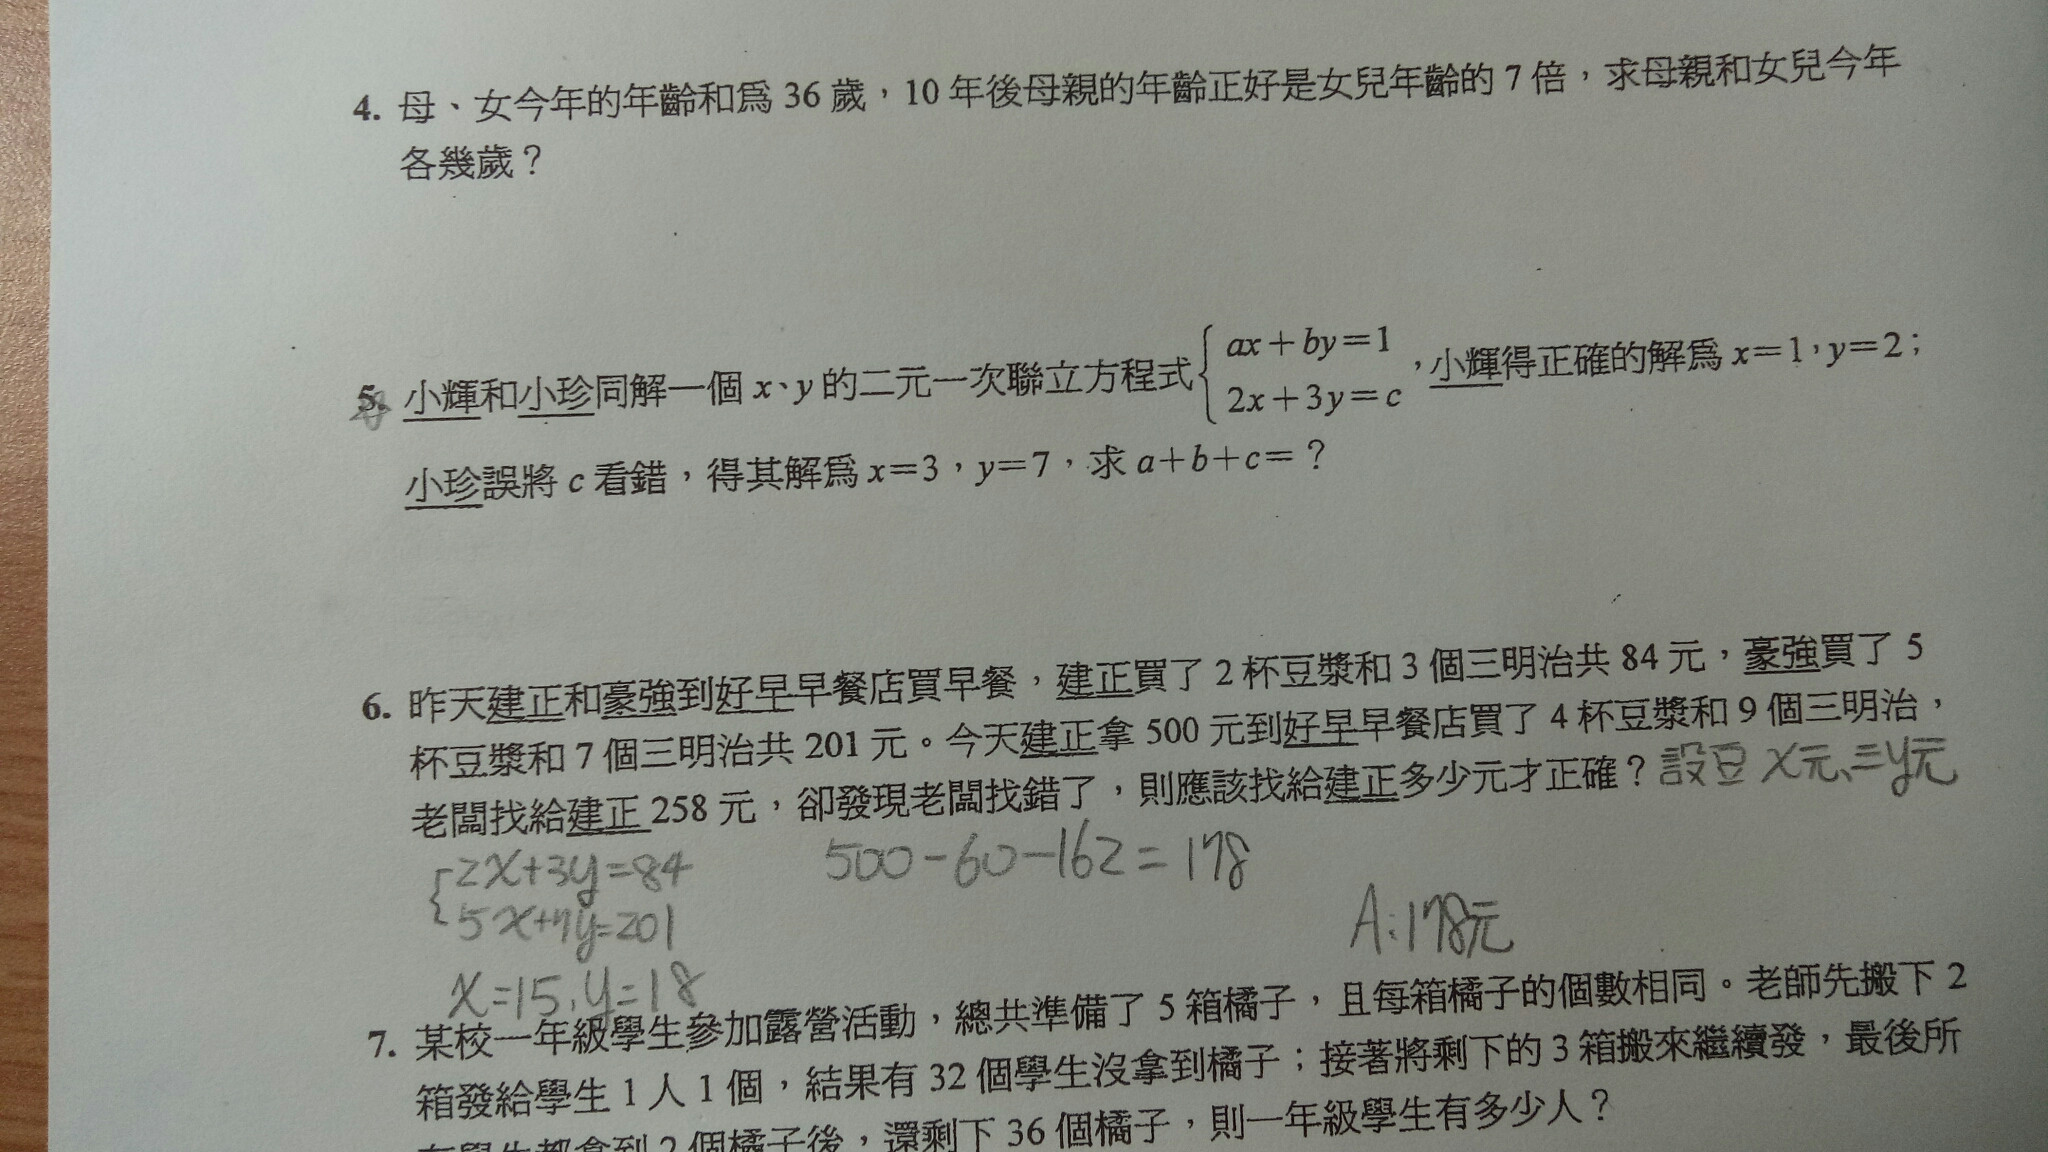 4. 母、女今年的年齡和為 36 歲，10 年後母親的年齡正好是女兒年齡的 7 倍，求母親和女兒今年
各幾歲？
5. 小輝和小珍同解一個 x、y 的二元一次聯立方程式 { ax＋by＝1
2x＋3y＝c ，小輝得正確的解為 x＝1，y＝2；
小珍誤將 c 看錯，得其解為 x＝3，y＝7，求 a＋b＋c＝？
6. 昨天建正和豪強到好早早餐店買早餐，建正買了 2 杯豆漿和 3 個三明治共 84 元，豪強買了 5
杯豆漿和 7 個三明治共 201 元。今天建正拿 500 元到好早早餐店買了 4 杯豆漿和 9 個三明治，
老闆找給建正 258 元，卻發現老闆找錯了，則應該找給建正多少元才正確？ 設豆 x元、三y元
{ 2x+3y=84
5x+7y=201
x=15, y=18
500-60-162=178
A:178元
7. 某校一年級學生參加露營活動，總共準備了 5 箱橘子，且每箱橘子的個數相同。老師先搬下 2
箱發給學生 1 人 1 個，結果有 32 個學生沒拿到橘子；接著將剩下的 3 箱搬來繼續發，最後所
有學生都拿到 2 個橘子後，還剩下 36 個橘子，則一年級學生有多少人？